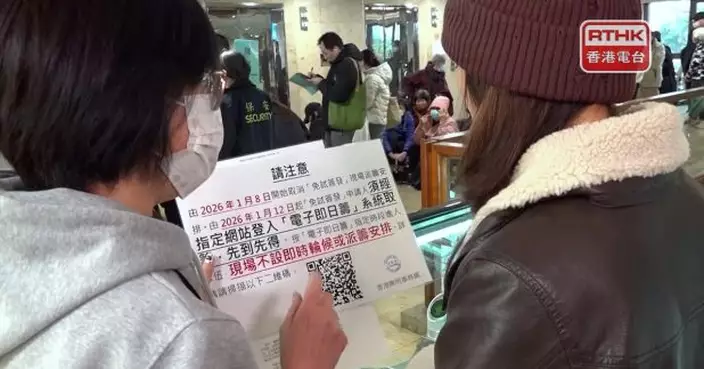 RTHK
香港電台
保安
SECURITY
請注意
由2026年1月8日開始取消「免試簽發」現場派籌安
排，由2026年1月12日起「免試簽發」申請人須經
指定網站登入「電子即日籌」系統取
籌，先到先得，按「電子即日籌」指定時段進入
現場不設即時輪候或派籌安排，詳
請掃描以下二維碼。